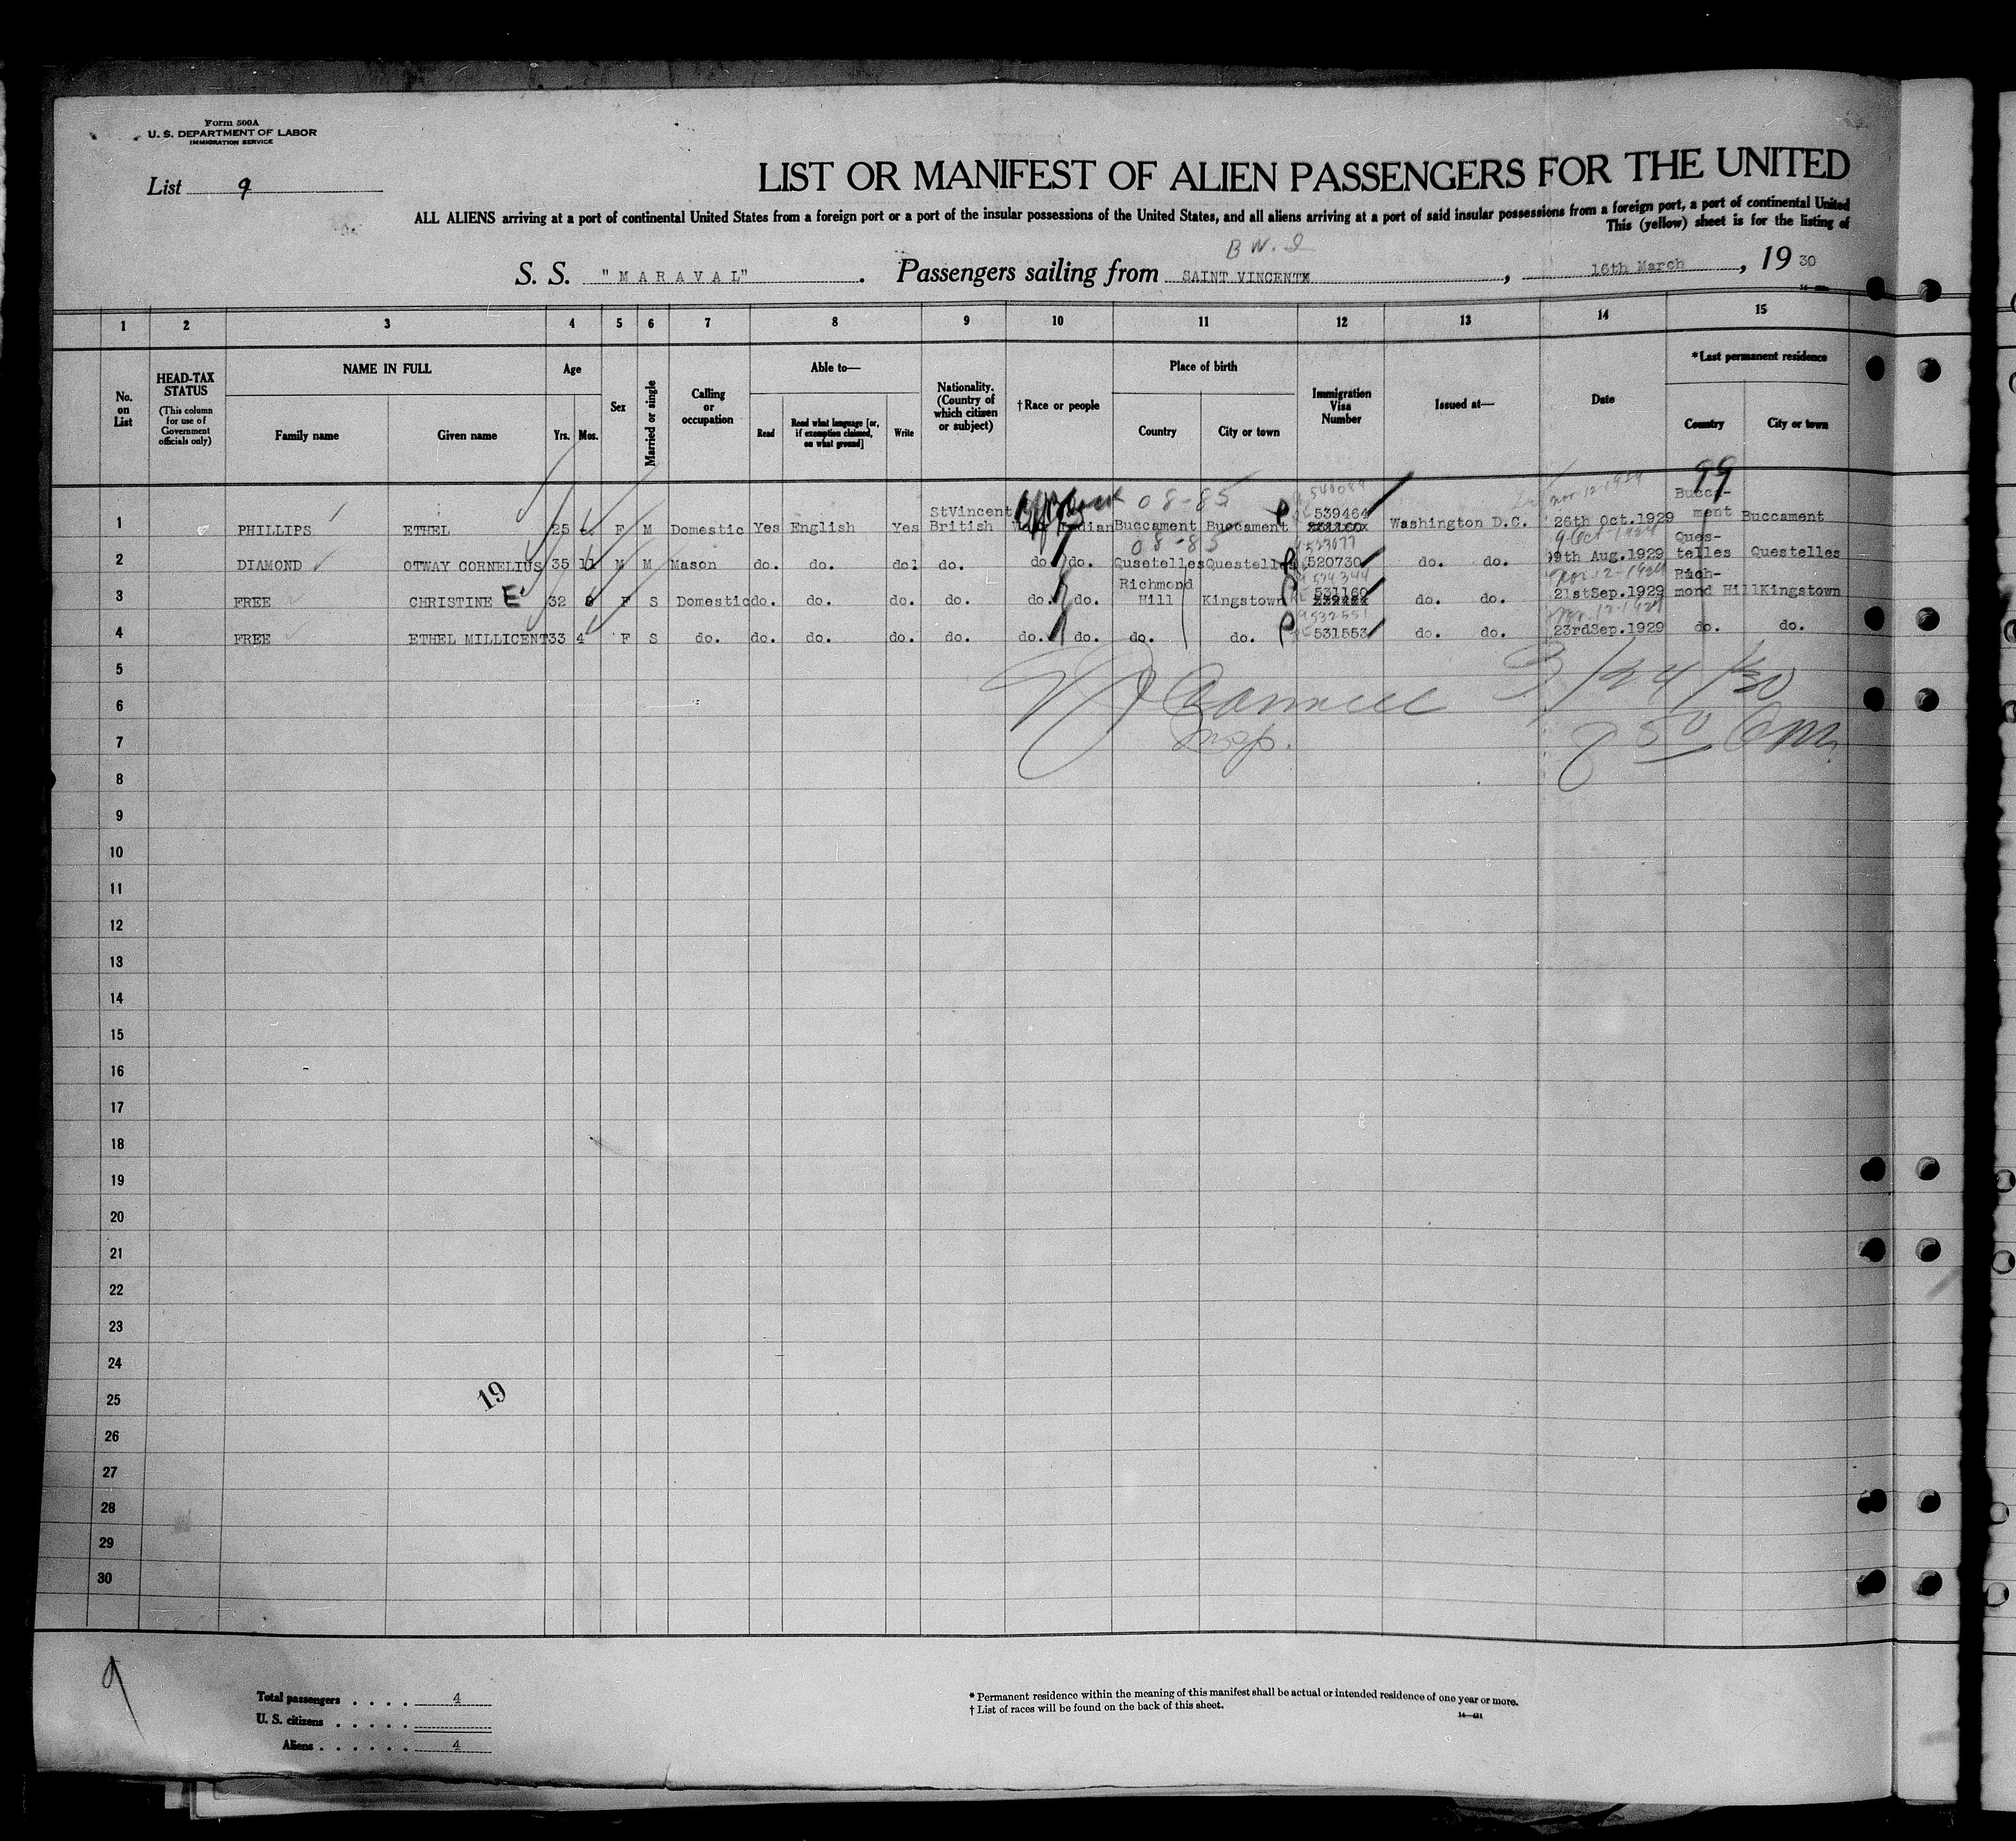 Form 500A
U. S. DEPARTMENT OF LABOR
IMMIGRATION SERVICE
List 9
LIST OR MANIFEST OF ALIEN PASSENGERS FOR THE UNITED
ALL ALIENS arriving at a port of continental United States from a foreign port or a port of the insular possessions of the United States, and all aliens arriving at a port of said insular possessions from a foreign port, a port of continental United
This (yellow) sheet is for the listing of
B W. I
S. S. "MARAVAL". Passengers sailing from SAINT VINCENTX, 16th March, 19 30
1 2 3 4 5 6 7 8 9 10 11 12 13 14 15
No. on List
HEAD-TAX STATUS (This column for use of Government officials only)
NAME IN FULL
Family name Given name
Age
Yrs. Mos.
Sex
Married or single
Calling or occupation
Able to—
Read Read what language [or, if exemption claimed, on what ground] Write
Nationality. (Country of which citizen or subject)
† Race or people
Place of birth
Country City or town
Immigration Visa Number
Issued at—
Date
*Last permanent residence
Country City or town
99
08-85 Nov. 12-1929
1 PHILLIPS ETHEL 25 F M Domestic Yes English Yes StVincent British Indian Buccament Buccament P 539464 Washington D.C. 26th Oct.1929 Bucca-ment Buccament
08-85 9 Oct-1929
2 DIAMOND OTWAY CORNELIUS 35 11 M M Mason do. do. do1 do. do. do. Qusetelles Questelles 520730 do. do. 9th Aug.1929 Ques-telles Questelles
Nov. 12-1929
3 FREE CHRISTINE E 32 F S Domestic do. do. do. do. do. do. Richmond Hill Kingstown 531160 do. do. 21stSep.1929 Rich-mond Hill Kingstown
Nov. 12-1929
4 FREE ETHEL MILLICENT 33 4 F S do. do. do. do. do. do. do. do. do. P 531553 do. do. 23rdSep.1929 do. do.
5
3/24/30
6
Insp.
7
8 50 am
8
9
10
11
12
13
14
15
16
17
18
19
20
21
22
23
24
25
19
26
27
28
29
30
9
Total passengers . . . . 4
U. S. citizens . . . . .
Aliens . . . . . . 4
* Permanent residence within the meaning of this manifest shall be actual or intended residence of one year or more.
† List of races will be found on the back of this sheet.